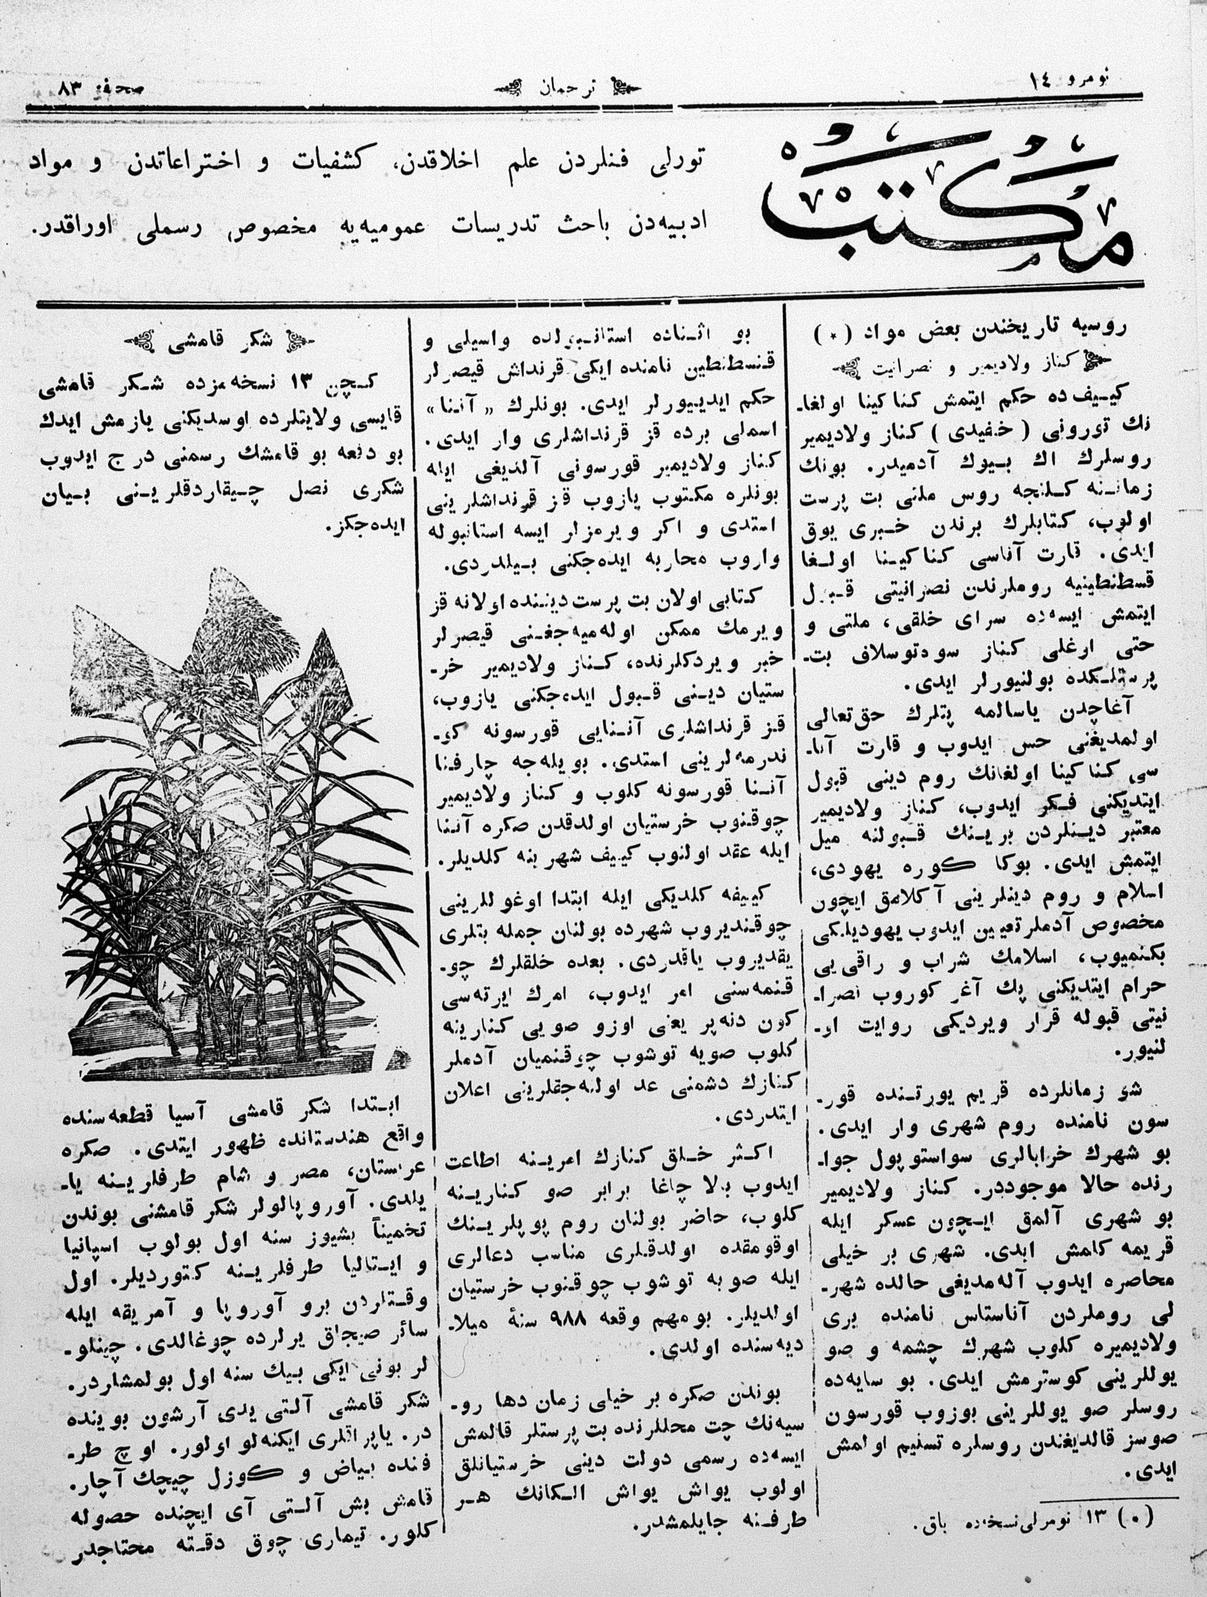 نومرو ١٤
ترجمان
صحفه ٨٣
مكتب
تورلی فنلردن علم اخلاقدن، كشفیات و اختراعاتدن و مواد
ادبیه‌دن باحث تدریسات عمومیه‌یه مخصوص رسملی اوراقدر.
روسیه تاریخندن بعض مواد (*)
كناز ولادیمیر و نصرانیت
كییف ده حكم ایتمش كناكینا اولغا-
نك تورونی (خفیدی) كناز ولادیمیر
روسلرك اك بیوك آدمیدر. بونك
زماننه كلنجه روس ملتی بت پرست
اولوب، كتابلرك برندن خبری یوق
ایدی. قارت آناسی كناكینا اولغا
قسطنطینیه روملرندن نصرانیتی قبول
ایتمش ایسه‌ده سرای خلقی، ملتی و
حتی اوغلی كناز سودتوسلاف بت-
پرستلكده بولنیورلر ایدی.
آغاچدن یاسالمه پتلرك حق تعالی
اولمدیغنی حس ایدوب و قارت آنا-
سی كناكینا اولغانك روم دینی قبول
ایتدیكنی فكر ایدوب، كناز ولادیمیر
معتبر دینلردن برینك قبولنه میل
ایتمش ایدی. بوكا كوره یهودی،
اسلام و روم دینلرینی آكلامق ایچون
مخصوص آدملر تعیین ایدوب یهودیلكی
بكنمیوب، اسلامك شراب و راقی‌یی
حرام ایتدیكنی پك آغر كوروب نصرا-
نیتی قبوله قرار ویردیكی روایت او-
لنیور.
شو زمانلرده قریم یورتنده قور-
سون نامنده روم شهری وار ایدی.
بو شهرك خرابالری سواستوپول جوا-
رنده حالا موجوددر. كناز ولادیمیر
بو شهری آلمق ایچون عسكر ایله
قریمه كلمش ایدی. شهری بر خیلی
محاصره ایدوب آله‌مدیغی حالده شهر-
لی روملردن آناستاس نامنده بری
ولادیمیره كلوب شهرك چشمه و صو
یوللرینی كوسترمش ایدی. بو سایه‌ده
روسلر صو یوللرینی بوزوب قورسون
صوسز قالدیغندن روسلره تسلیم اولمش
ایدی.
(*) ١٣ نومرلی نسخه‌ده باق.
بو اثناده استانبولده واسیلی و
قنسطنطین نامنده ایكی قرنداش قیصرلر
حكم ایدییورلر ایدی. بونلرك «آننا»
اسملی برده قز قرنداشلری وار ایدی.
كناز ولادیمیر قورسونی آلدیغی ایله
بونلره مكتوب یازوب قز قرنداشلرینی
استدی و اكر ویرمزلر ایسه استانبوله
واروب محاربه ایده‌جكنی بیلدردی.
كتابی اولان بت پرست دیننده اولانه قز
ویرمك ممكن اوله‌میه‌جغنی قیصرلر
خبر ویردكلرنده، كناز ولادیمیر خر-
ستیان دینی قبول ایده‌جكنی یازوب،
قز قرنداشلری آننایی قورسونه كو-
ندرمه‌لرینی استدی. بویله‌جه چارفنا
آننا قورسونه كلوب و كناز ولادیمیر
چوقنوب خرستیان اولدقدن صكره آننا
ایله عقد اولنوب كییف شهرینه كلدیلر.
كییفه كلدیكی ایله ابتدا اوغوللرینی
چوقندیروب شهرده بولنان جمله بتلری
یقدیروب یاقدردی. بعده خلقلرك چو-
قنمه‌سنی امر ایدوب، امرك ایرته‌سی
كون دنه‌پر یعنی اوزو صویی كنارینه
كلوب صویه توشوب چوقنمیان آدملر
كنازك دشمنی عد اوله‌جقلرینی اعلان
ایتدردی.
اكثر خلق كنازك امرینه اطاعت
ایدوب بالا چاغا برابر صو كنارینه
كلوب، حاضر بولنان روم پوپلرینك
اوقومقده اولدقلری مناسب دعالری
ایله صویه توشوب چوقنوب خرستیان
اولدیلر. بو مهم وقعه ٩٨٨ سنۀ میلا-
دیه‌سنده اولدی.
بوندن صكره بر خیلی زمان دها رو-
سیه‌نك چت محللرنده بت پرستلر قالمش
ایسه‌ده رسمی دولت دینی خرستیانلق
اولوب یواش یواش الكانك هر
طرفنه جایلمشدر.
شكر قامشی
كچن ١٣ نسخه‌مزده شكر قامشی
قایسی ولایتلرده اوسدیكنی یازمش ایدك
بو دفعه بو قامشك رسمنی درج ایدوب
شكری نصل چیقاردقلرینی بیان
ایده‌جكز.
ابتدا شكر قامشی آسیا قطعه‌سنده
واقع هندستانده ظهور ایتدی. صكره
عربستان، مصر و شام طرفلرینه یا-
یلدی. آوروپالولر شكر قامشنی بوندن
تخمیناً بشیوز سنه اول بولوب اسپانیا
و ایتالیا طرفلرینه كتوردیلر. اول
وقتلردن برو آوروپا و آمریقه ایله
سائر صیجاق یرلرده چوغالدی. چینلو-
لر بونی ایكی بیك سنه اول بولمشلردر.
شكر قامشی آلتی یدی آرشون بوینده
در. یاپراقلری ایكنه‌لو اولور. اوچ طر-
فنده بیاض و كوزل چیچك آچار.
قامش بش آلتی آی ایچنده حصوله
كلور. تیماری چوق دقته محتاجدر